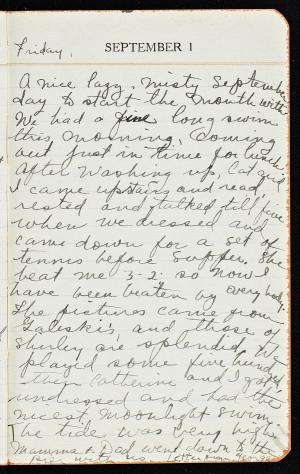 Friday,
SEPTEMBER 1
A nice lazy, misty September
day to start the month with
We had a fine long swim
this morning, coming
out just in time for lunch.
After washing up, Cat and
I came upstairs and read,
rested and talked till five
when we dressed and
came down for a set of
tennis before supper. She
beat me 3-2. so now I
have been beaten by everybody.
The pictures came from
Galiski's and those of
Shirley are splendid. We
played some five hundred
then Catherine and I got
undressed and had the
nicest moonlight swim.
The tide was very high.
Mamma & Dad went down to the
pier with us